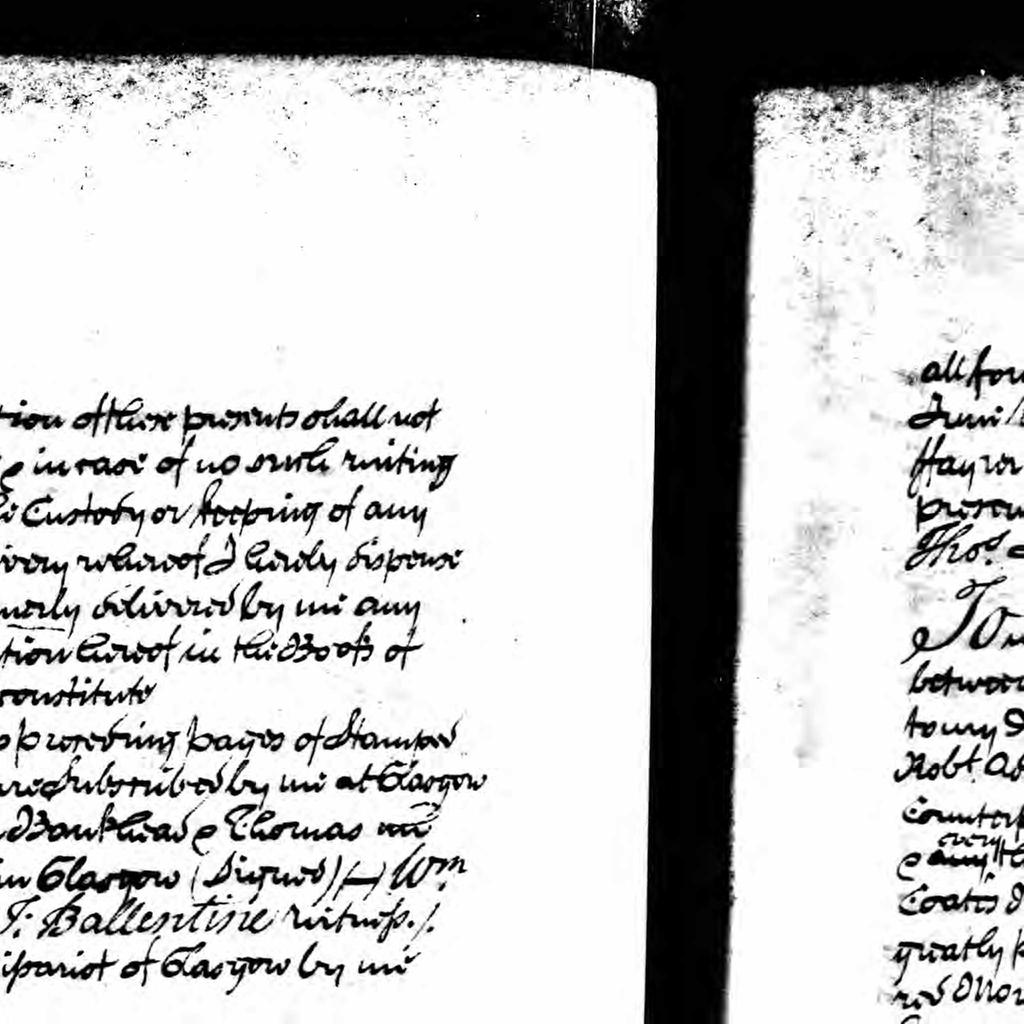 tion of these presents shall not
& in case of no such writing
Custody or keeping of any
very whereof I hereby dispense
merly delivered by me any
tion hereof in the Books of
constitute
preceding pages of Stamped
are Subscribed by me at Glasgow
Bankhead & Thomas mc
in Glasgow (Signed) (—) Wm
J: Ballentine witness./.
of Glasgow by me
all for
Juni
Hay
presen
Thos.
To
between
to my
Robt
Counterp
every
& any th
Coats
greatly
red Mon